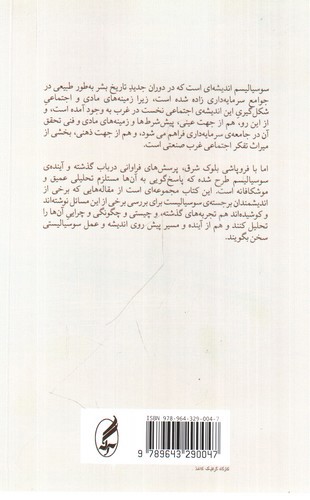 سوسیالیسم اندیشه‌ای است که در دوران جدیدِ تاریخ بشر به‌طور طبیعی در
جوامع سرمایه‌داری زاده شده است، زیرا زمینه‌های مادی و اجتماعیِ
شکل‌گیری این اندیشه‌ی اجتماعی نخست در غرب به وجود آمده است، و
از این رو، هم از جهت عینی، پیش‌شرط‌ها و زمینه‌های مادی و فنی تحقق
آن در جامعه‌ی سرمایه‌داری فراهم می شود، و هم از جهت ذهنی، بخشی از
میراث تفکر اجتماعی غرب صنعتی است.
اما با فروپاشی بلوک شرق، پرسش‌های فراوانی درباب گذشته و آینده‌ی
سوسیالیسم طرح شده که پاسخ‌گویی به آن‌ها مستلزم تحلیلی عمیق و
موشکافانه است. این کتاب مجموعه‌ای است از مقاله‌هایی که برخی از
اندیشمندان برجسته‌ی سوسیالیست برای بررسی برخی از این مسائل نوشته‌اند
و کوشیده‌اند هم تجربه‌های گذشته، و چیستی و چگونگی و چرایی آن‌ها را
تحلیل کنند و هم از آینده و مسیر پیش روی اندیشه و عمل سوسیالیستی
سخن بگویند.
ISBN 978-964-329-004-7
9 789643 290047